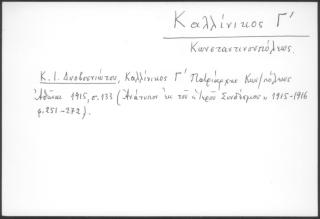 Καλλίνικος Γ'
Κωνσταντινουπόλεως.
Κ. Ι. Δυοβουνιώτου, Καλλίνικος Γ' Πατριάρχης Κων/πόλεως
Ἀθῆναι 1915, σ. 133 (Ἀνάτυπον ἐκ τοῦ «Ἱεροῦ Συνδέσμου» 1915-1916
φ. 251-272).